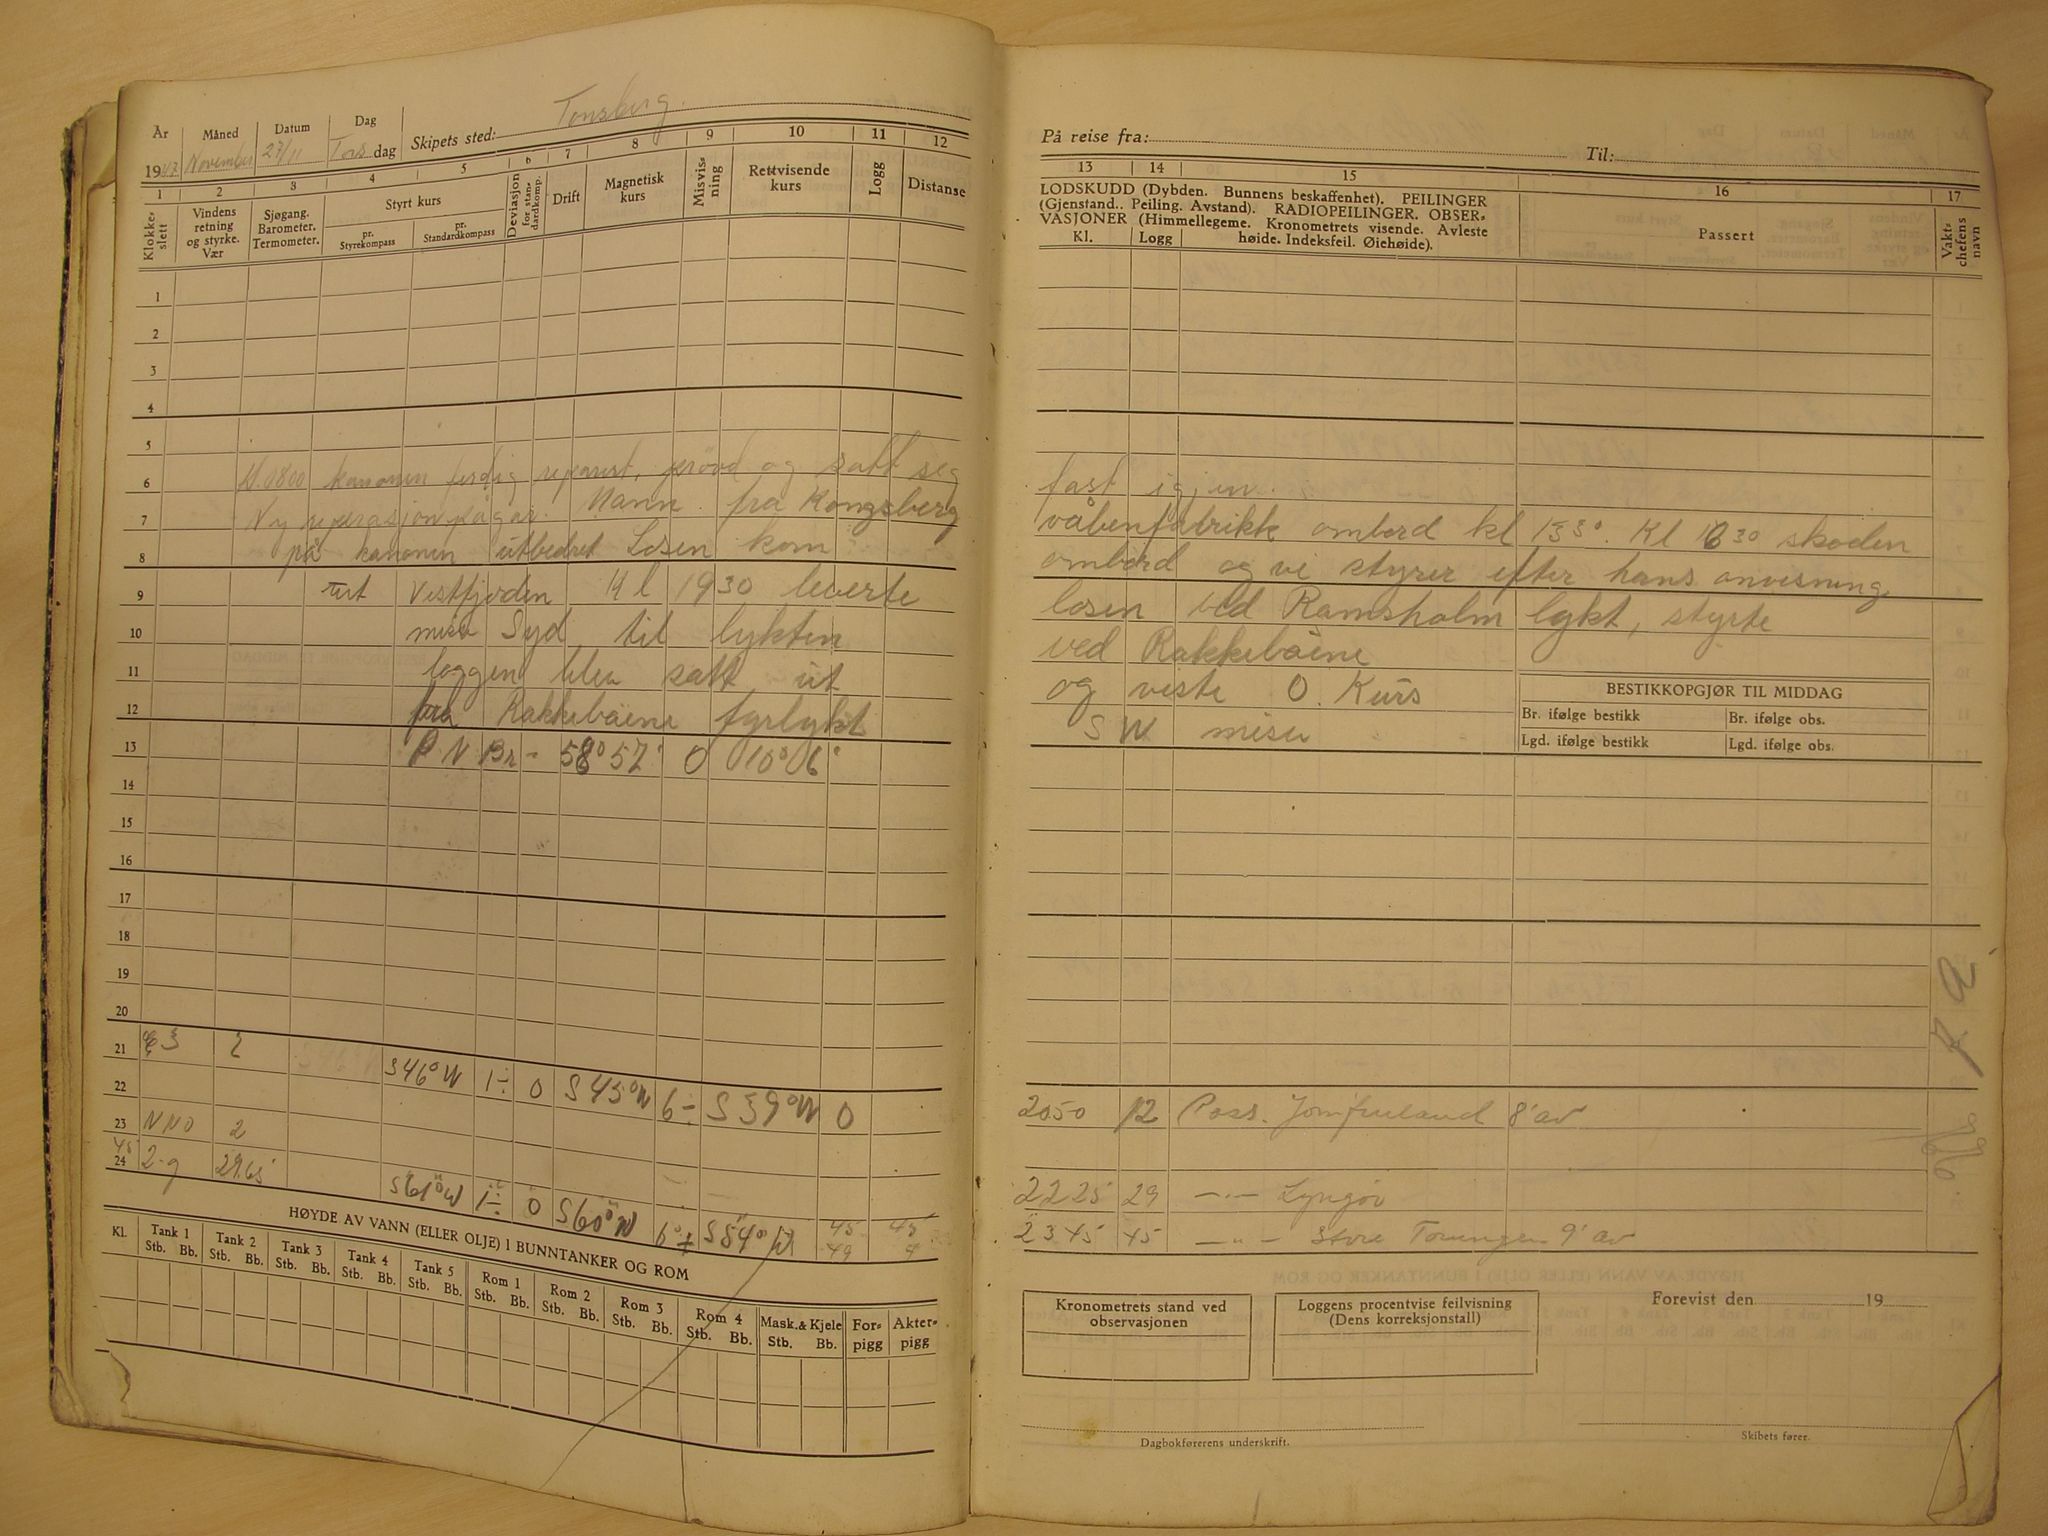 År Måned Datum Dag Skipets sted: Tønsberg.
1947 November 27/11 Tors dag
1 2 3 4 5 6 7 8 9 10 11 12
Klokke-slett Vindens retning og styrke. Vær Sjøgang. Barometer. Termometer. Styrt kurs pr. Styrekompass pr. Standardkompass Deviasjon for standardkomp. Drift Magnetisk kurs Misvisning Rettvisende kurs Logg Distanse
1
2
3
4
5
6 Kl. 0800 kanonen ferdig reparert, prøvd og satt seg
7 Ny reperasjon pågår. Mann fra Kongsberg
8 på kanonen utbedret Losen kom
9 Vestfjorden Kl 1930 leverte
10 misv Syd til lykten
11 loggen blev satt ut
12 fra Rakkebåene fyrlykt
13 P N Br = 58° 57' O 10° 06'
14
15
16
17
18
19
20
21 3 2
22 S 46° W 1 ÷ 0 S 45° W 6 ÷ S 39° W 0
23 NNO 2
24 2-9 29.65 S 61° W 1 ÷ 0 S 60° W 6° S 54° W 45 45
49 4
HØYDE AV VANN (ELLER OLJE) I BUNNTANKER OG ROM
Kl. Tank 1 Tank 2 Tank 3 Tank 4 Tank 5 Rom 1 Rom 2 Rom 3 Rom 4 Mask. & Kjele For-pigg Akter-pigg
Stb. Bb. Stb. Bb. Stb. Bb. Stb. Bb. Stb. Bb. Stb. Bb. Stb. Bb. Stb. Bb. Stb. Bb. Stb. Bb.
På reise fra: Til:
13 14 15 16 17
LODSKUDD (Dybden. Bunnens beskaffenhet). PEILINGER
(Gjenstand.. Peiling. Avstand). RADIOPEILINGER. OBSER-
VASJONER (Himmellegeme. Kronometrets visende. Avleste
Kl. Logg høide. Indeksfeil. Øiehøide).
Passert
Vakt-chefens navn
fast igjen.
våbenfabrikk ombord kl 1330. Kl 1630 skoden
ombord og vi styrer efter hans anvisning
losen ved Ramsholm lykt, styrte
ved Rakkebåene
og viste 0. Kurs
SW misv
BESTIKKOPGJØR TIL MIDDAG
Br. ifølge bestikk Br. ifølge obs.
Lgd. ifølge bestikk Lgd. ifølge obs.
2050 12 Pass. Jomfruland 8' av
2225 29 —"— Lyngør
2345 45 —"— Store Torungen 9' av
Kronometrets stand ved observasjonen
Loggens procentvise feilvisning (Dens korreksjonstall)
Forevist den 19
Dagbokførerens underskrift.
Skibets fører.